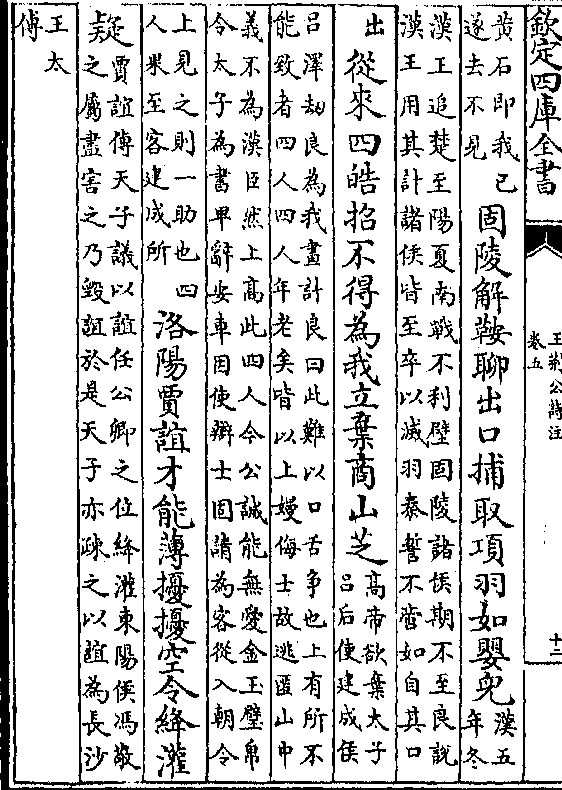 欽定四庫全書
王荊公詩注
卷五
十二
黄石即我已
遂去不見
固陵解鞍聊出口捕取項羽如嬰兒
漢五
年冬
漢王追楚至陽夏南戰不利壁固陵諸侯期不至良說
漢王用其計諸侯皆至卒以滅羽秦誓不啻如自其口
出
從來四皓招不得為我立棄商山芝
高帝欲棄太子
呂后使建成侯
呂澤劫良為我畫計良曰此難以口舌爭也上有所不
能致者四人四人年老矣皆以上嫚侮士故逃匿山中
義不為漢臣然上高此四人今公誠能無愛金玉璧帛
令太子為書卑辭安車因使辯士固請為客從入朝令
上見之則一助也四
人果至客建成所
洛陽賈誼才能薄擾擾空令絳灌
疑
賈誼傳天子議以誼任公卿之位絳灌東陽侯馮敬
之屬盡害之乃毀誼於是天子亦疎之以誼為長沙
王太
傅